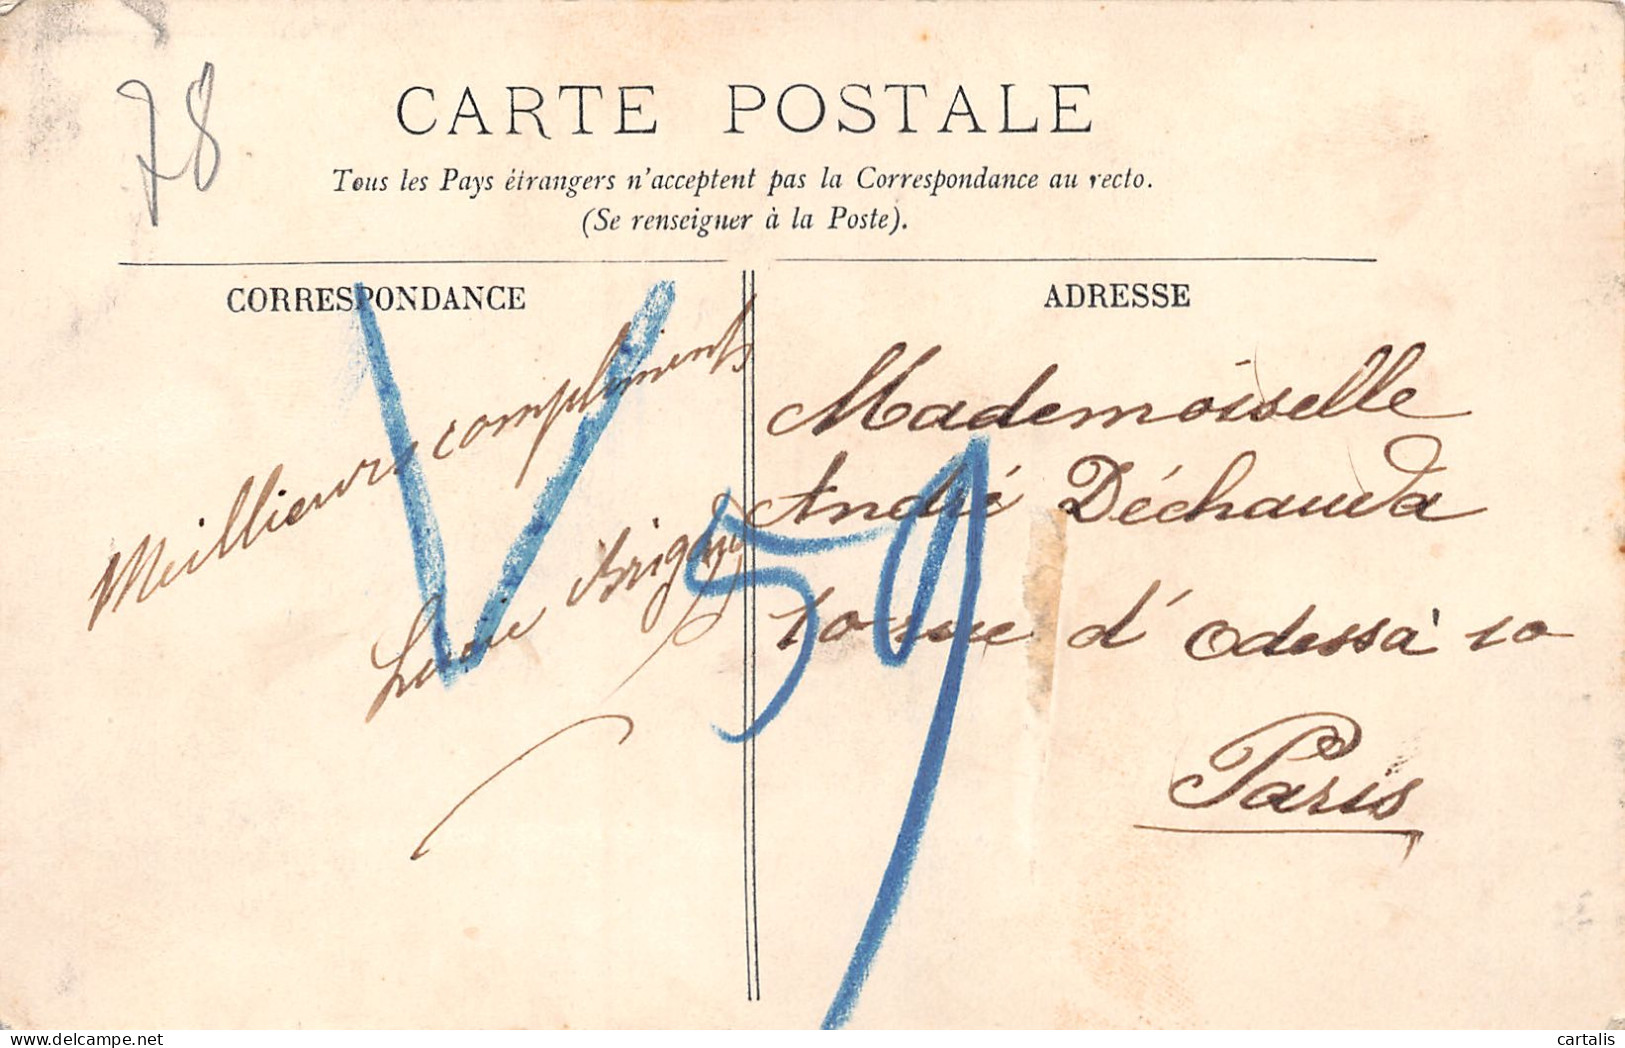 78
CARTE POSTALE
Tous les Pays étrangers n'acceptent pas la Correspondance au recto.
(Se renseigner à la Poste).
CORRESPONDANCE
Meillieurs compliments
Lucie
V 59
ADRESSE
Mademoiselle
André Déchauda
10 rue d'Odessa 10
Paris
delcampe.net
cartalis